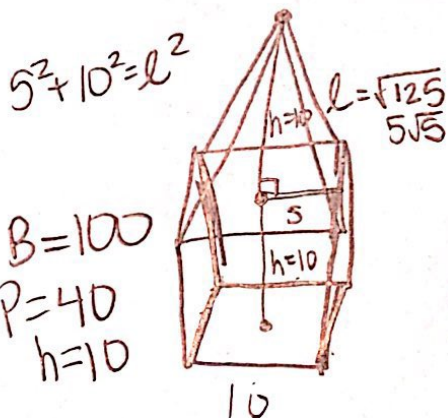 5²+10²=l²
h=10
l=√125
5√5
5
B=100
h=10
P=40
h=10
10